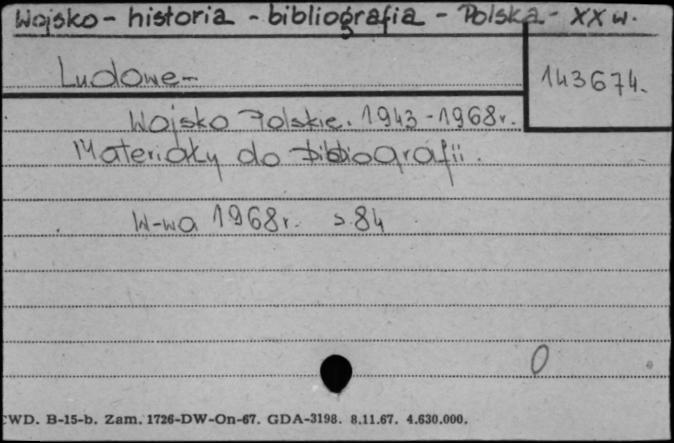 Wojsko - historia - bibliografia - Polska - XX w.
Ludowe-
143674.
Wojsko Polskie. 1943-1968r.
Materiały do bibliografii.
W-wa 1968r. s. 84
0
CWD. B-15-b. Zam. 1726-DW-On-67. GDA-3198. 8.11.67. 4.630.000.